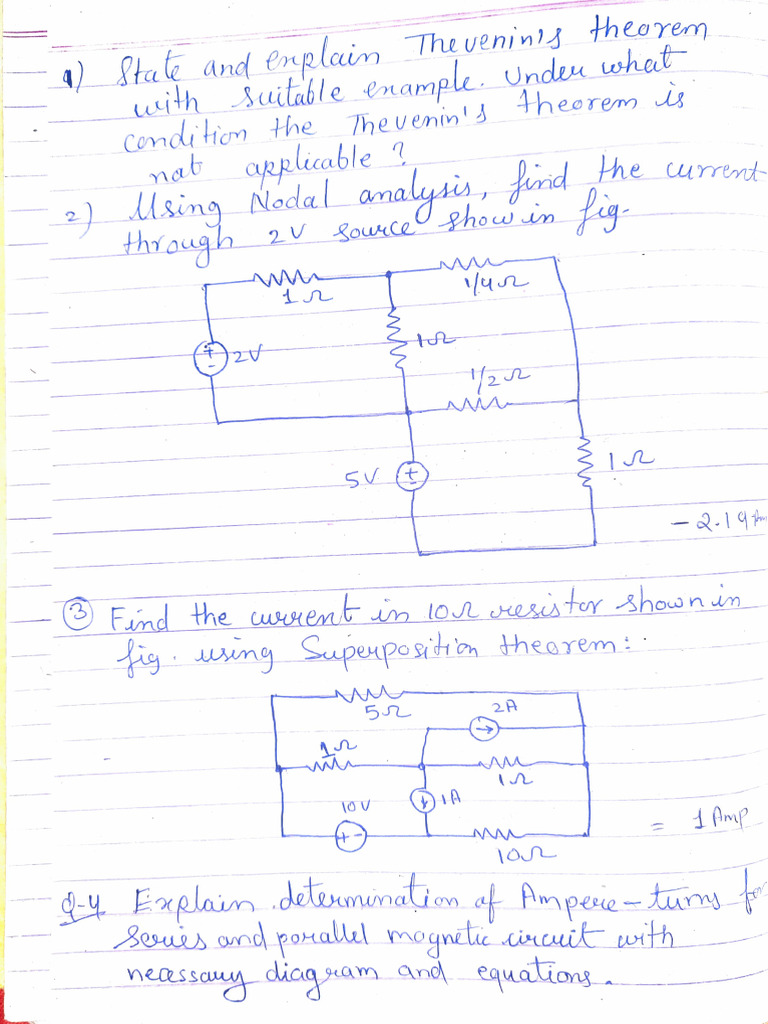 1) State and explain Thevenin's theorem
with suitable example. Under what
condition the Thevenin's theorem is
not applicable ?
2) Using Nodal analysis, find the current
through 2V source show in fig.
1Ω
1/4Ω
1Ω
2V
1/2Ω
5V
1Ω
- 2.19
③ Find the current in 10Ω resistor shown in
fig. using Superposition theorem:
5Ω
2A
1Ω
1Ω
10V
1A
10Ω
= 1 Amp
Q-4 Explain determination of Ampere-turns for
series and parallel magnetic circuit with
necessary diagram and equations.